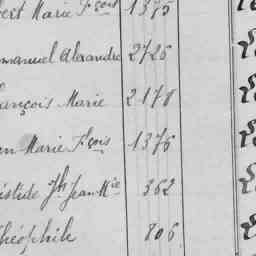 bert Marie Fçois 1375
manuel Alexandre 2726
ançois Marie 2178
en Marie Fçois 1376
istide Jh Jean Mie 362
héophile 806